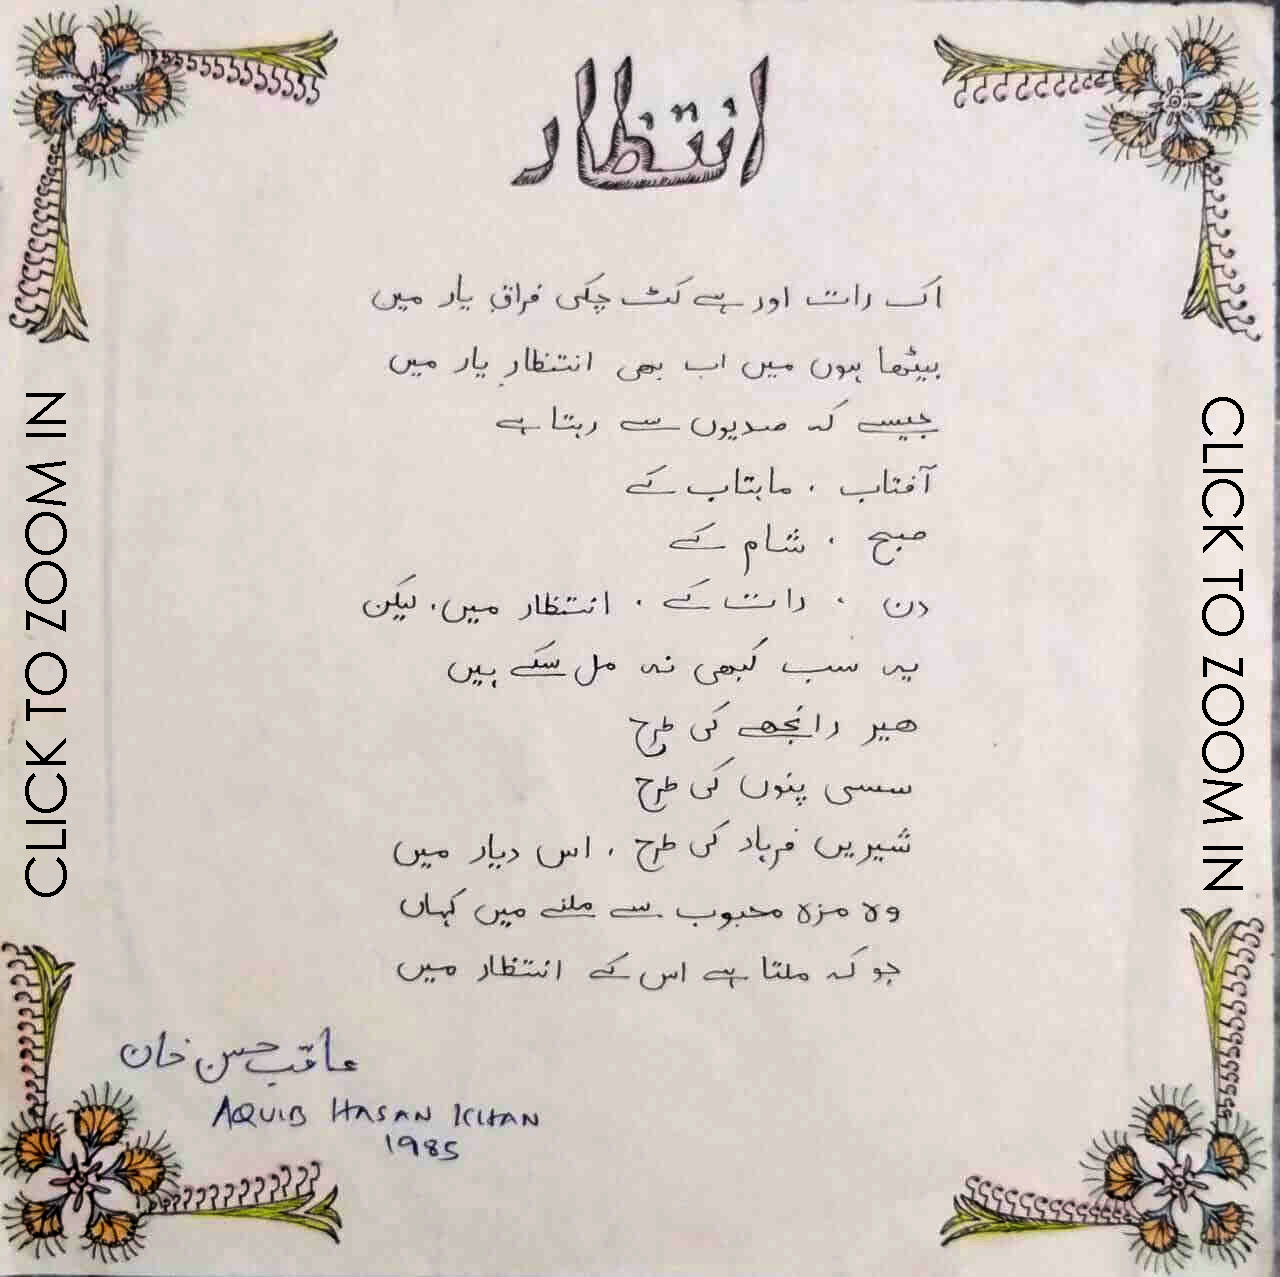 انتظار
اک رات اور ہے کٹ چکی فراق یار میں
بیٹھا ہوں میں اب بھی انتظار یار میں
جیسے کہ صدیوں سے رہتا ہے
آفتاب ، ماہتاب کے
صبح ، شام کے
دن ، رات کے ، انتظار میں، لیکن
یہ سب کبھی نہ مل سکے ہیں
ھیر رانجھے کی طرح
سسی پنوں کی طرح
شیریں فرہاد کی طرح ، اس دیار میں
وہ مزہ محبوب سے ملنے میں کہاں
جو کہ ملتا ہے اس کے انتظار میں
عاقب حسن خان
AQUIB HASAN KHAN
1985
CLICK TO ZOOM IN
CLICK TO ZOOM IN